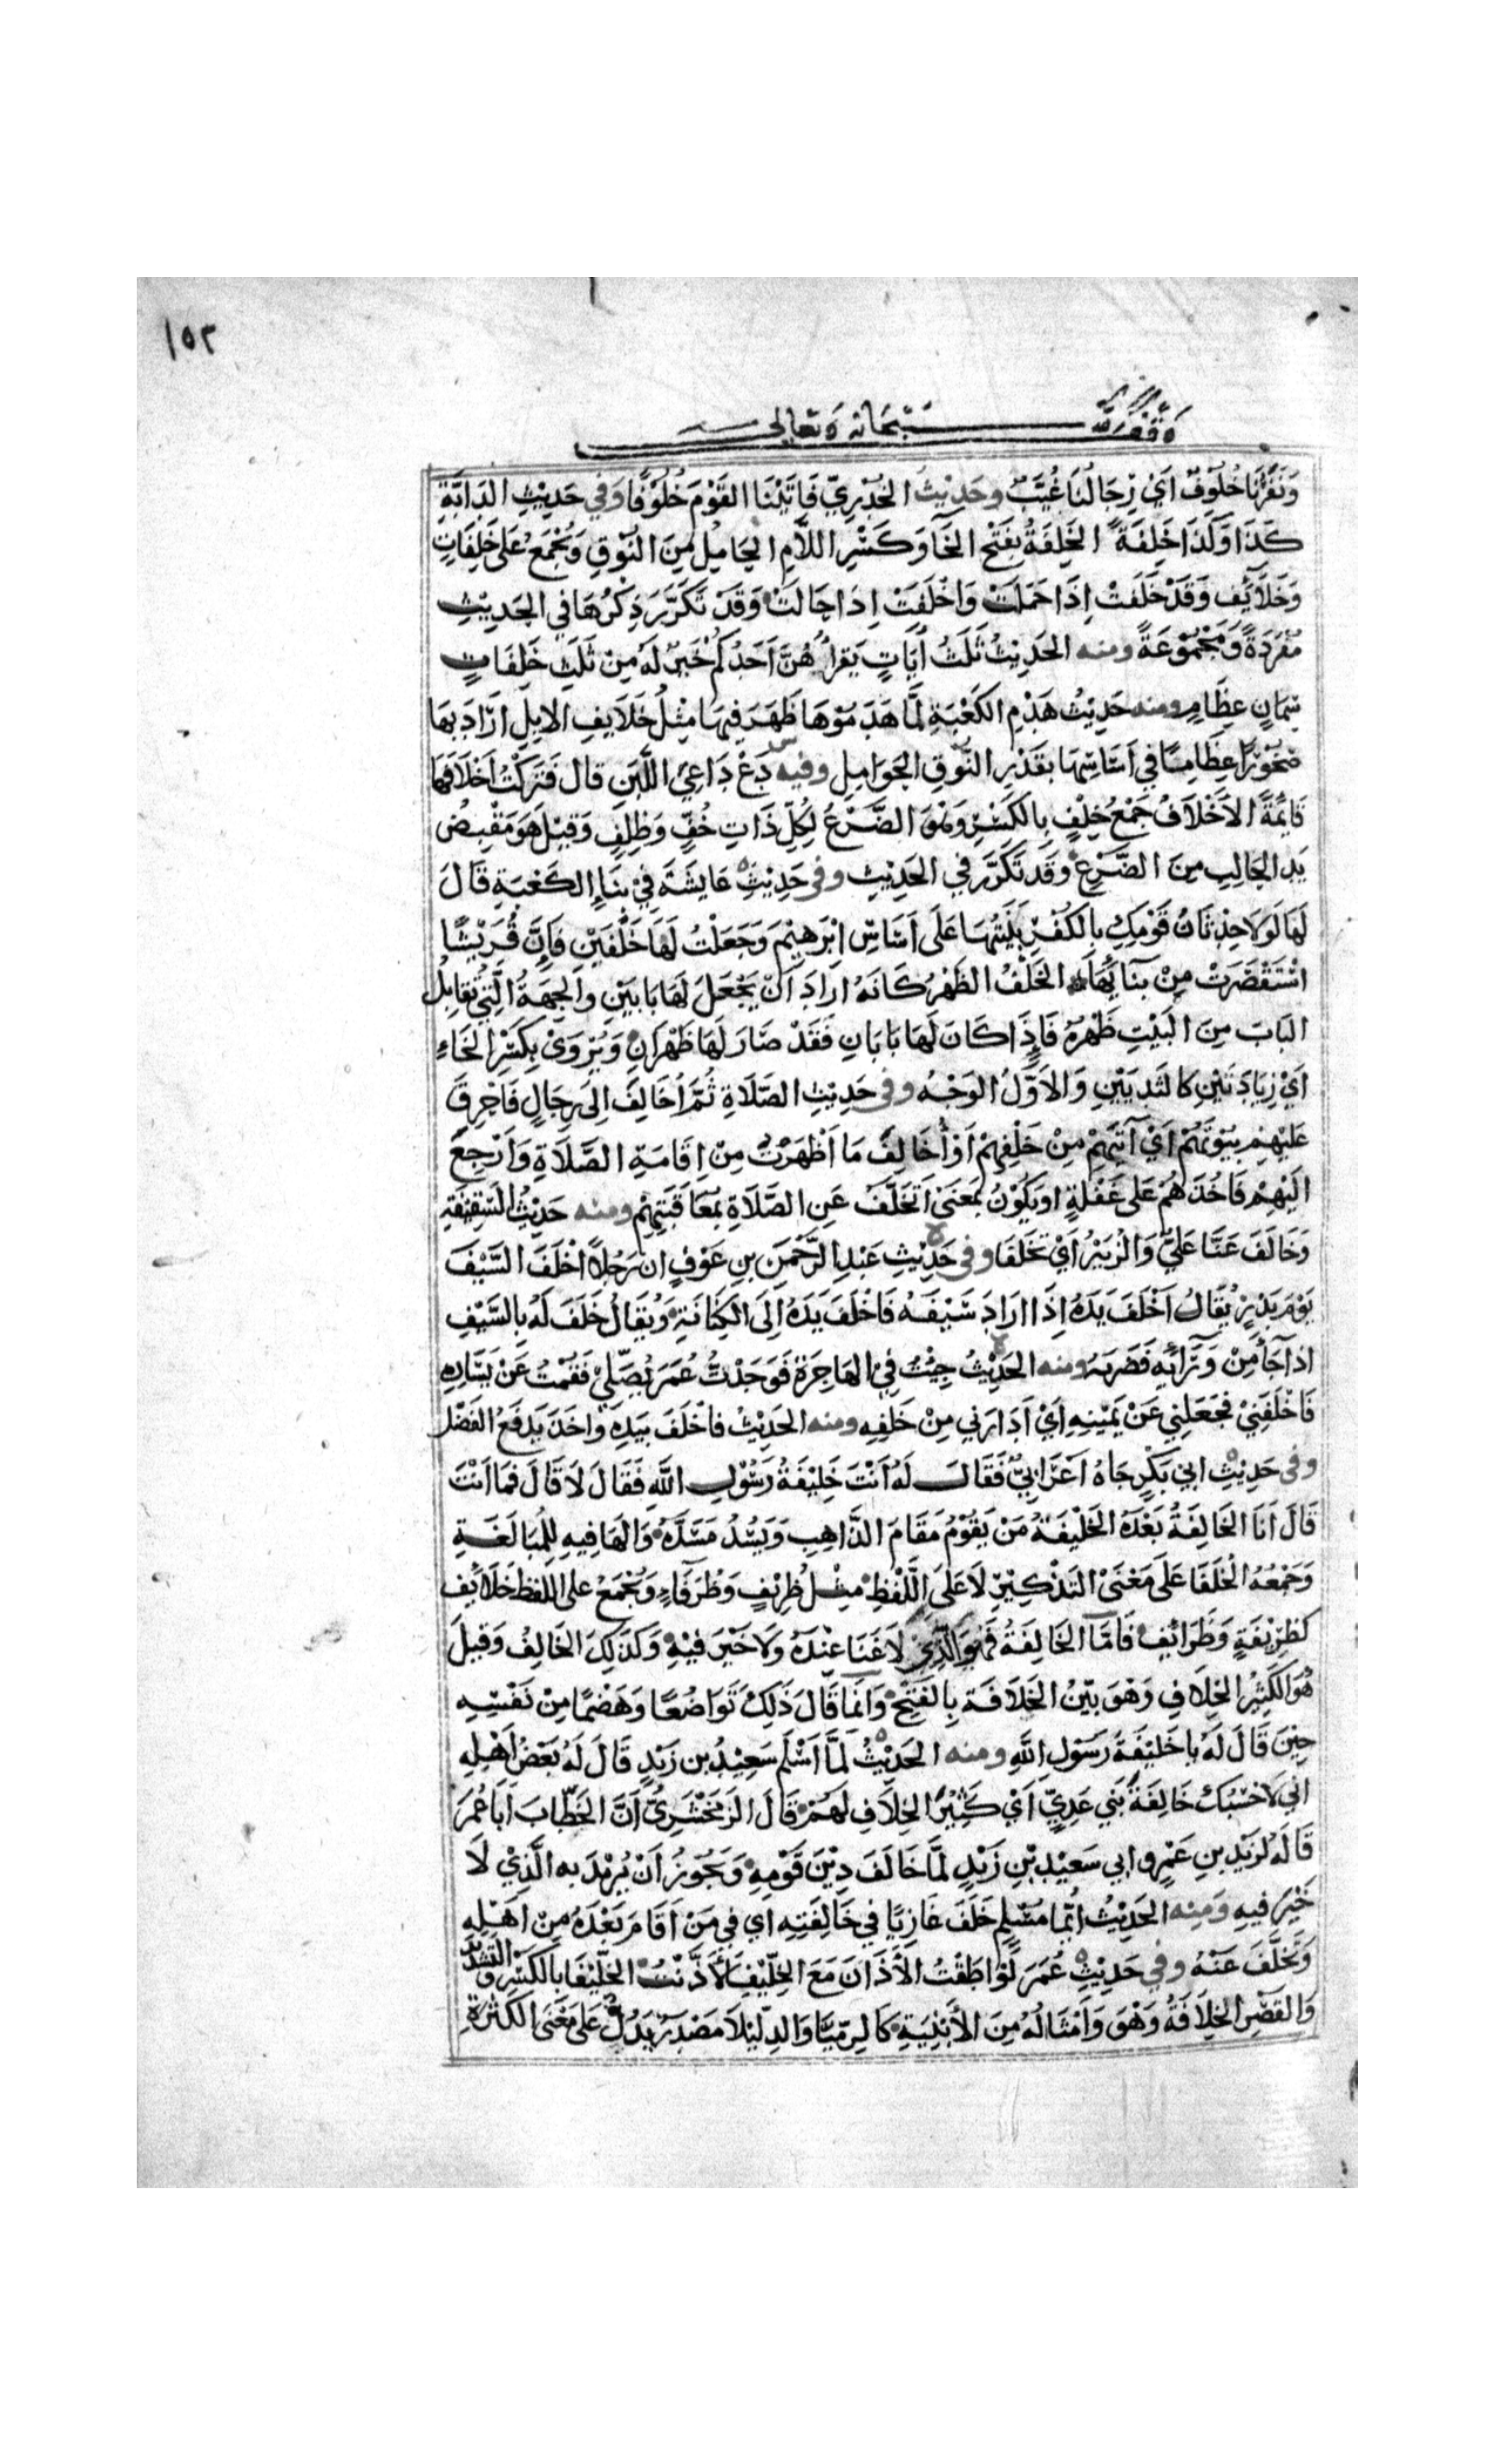 ١٥٢
وقف لله سبحانه وتعالى
وَنَفَرُنَا خُلُوفٌ اَيْ رِجَالُنَا غُيَّبٌ وحَدِيْثُ الخُدْرِيِّ فَاَتَيْنَا القَوْمَ خُلُوْفًا وَفِي حَدِيْثِ الدَابَّةِ
كَذَا وَكَذَا خَلِفَةً الخَلِفَةُ بفَتْحِ الخَاءِ وَكَسْرِ اللَّامِ الحَامِلُ مِنَ النُوْقِ وَتُجْمَعُ عَلَى خَلِفَاتٍ
وَخَلَائِفَ وَقَدْ خَلَفَتْ اِذَا حَمَلَتْ وَاخْلَفَتْ اِذَا حَالَتْ وَقَدْ تَكَرَّرَ ذِكْرُهَا في الحَدِيْثِ
مُفْرَدَةً وَمَجْمُوْعَةً ومنه الحَدِيْثُ ثَلَثُ اَيَاتٍ يَقرأُهُنَّ اَحَدُكُمْ خَيْرٌ لَهُ مِنْ ثَلَثِ خَلِفَاتٍ
سِمَانٍ عِظَامٍ ومنه حَدِيْثُ هَدْمِ الكَعْبَةِ لَمَّا هَدَمُوْهَا ظَهَرَ فِيْهَا مِثْلُ خَلَايِفِ الابِلِ ارَادَ بِهَا
صُخُوْرًا عِظَامًا في اَسَاسِهَا بقَدْرِ النُّوْقِ الحَوَامِلِ وفيه دَعْ دَاعِيَ اللَّبَنِ قال فَتَرَكْتُ اَخْلَافَهَا
قَائِمَةً الاَخْلَافُ جَمْعُ خِلْفٍ بِالكَسْرِ وَهُوَ الضَّرْعُ لِكُلِّ ذَاتِ خُفٍّ وَظِلْفٍ وَقِيْلَ هُوَ مَقْبِضُ
يَدِ الحَالِبِ مِنَ الضَّرْعِ وَقَد تَكَرَّرَ في الحَدِيْثِ وفي حَدِيْثِ عَايشَةَ فِيْ بِنَاءِ الكَعْبَةِ قَالَ
لَهَا لَوْلَا حِدْثَانُ قَوْمِكِ بِالكُفْرِ بَنَيْتُهَا عَلَى اَسَاسِ اِبْرٰهِيْمَ وَجَعَلْتُ لَهَا خَلْفَيْنِ فَاِنَّ قُرَيْشًا
اسْتَقْصَرَتْ مِنْ بِنَائِهَا الخَلْفُ الظَهْرُ كَاَنَّهُ ارَادَ اَنْ يَجْعَلَ لَهَا بَابَيْنِ والجِهَةُ الَّتِي تُقَابِلُ
البَابَ مِنَ البَيْتِ ظَهْرُهُ فَاِذَا كَانَ لَهَا بَابَانِ فَقَدْ صَارَ لَهَا ظَهْرَانِ وَيُرْوَىْ بِكَسْرِ الخَاءِ
اَيْ زِيَادَتَيْنِ كالثَدْيَيْنِ وَالاَوَّلُ الوَجْهُ وفي حَدِيْثِ الصَّلَاةِ ثُمَّ اُخَالِفَ اِلَى رِجَالٍ فَاُحَرِقَ
عَلَيْهِمْ بِيُوْتَهُمْ اَيْ آتِيَهُمْ مِنْ خَلْفِهِمْ اَوْ اُخَالِفُ مَا اَظْهَرْتُ مِنْ اِقَامَةِ الصَّلَاةِ وَاَرْجِعُ
الَيْهِمْ فَاخُذَهُمْ عَلَى غَفْلَةٍ او يَكُوْنُ بمَعْنَىْ اَتَخَلَّفُ عَنِ الصَّلَاةِ بمُعَاقَبَتِهِمْ ومنه حَدِيْثُ السَّقِيْفَةِ
وَخَالَفَ عَنَّا عَلِيٌّ وَالزُبَيْرُ اَيْ تَخَلَّفَا وفي حَدِيْثِ عَبْدِ الرَّحْمٰنِ بنِ عَوْفٍ ان رَجُلًا اَخْلَفَ السَّيْفَ
يَوْمَ بَدْرٍ يُقَالُ اَخْلَفَ يَدَهُ اِذَا ارَادَ سَيْفَهُ فَاَخْلَفَ يَدَهُ اِلَى الكِنَانَةِ وَيُقَالُ خَلَفَ لَهُ بِالسَّيْفِ
اذا جَآءَ مِنْ وَرَائِهِ فَضَرَبَهُ ومنه الحَدِيْثُ جِئْتُ فِيْ الهَاجِرَةِ فَوَجَدْتُّ عُمَرَ يُصَلِّيْ فَقُمْتُ عَنْ يَسَارِهِ
فَاَخْلَفَنِيْ فَجَعَلَنِي عَنْ يَمِيْنِهِ اَيْ اَدَارَنِي مِنْ خَلفِهِ ومنه الحَدِيْثُ فاَخْلَفَ بيَدِهِ وَاَخَذَ يَدفَعُ الفَضْل
وفي حَدِيْثِ ابي بَكْرٍ جَاهُ اَعْرَابِيٌّ فَقَالَ لَهُ اَنْتَ خَلِيْفَةُ رَسُوْلِ اللَّهِ فَقَالَ لَا قَالَ فَمَا اَنْتَ
قَالَ اَنَا الخَالِفَةُ بَعْدَهُ الخَلِيْفَةُ مَنْ يَقُوْمُ مَقَامَ الذَّاهِبِ وَيَسُدُّ مَسَدَّهُ وَالهَا فِيهِ لِلْمُبَالَغَةِ
وَجَمْعُهُ الْخُلَفَا عَلَى مَعْنَىْ التَذْكِيْرِ لَا عَلَى اللَّفْظِ مِثْلُ ظَرِيْفٍ وَظُرَفَاءِ وَيُجْمَعُ على اللفظِ خَلَائِف
كظَرِيْفَةٍ وَظَرَائِفَ فَامَّا الخَالِفَةُ فَهُوَ الَّذِيْ لَا غَنَا عِنْدَهُ وَلَا خَيْرَ فِيْهِ وَكَذَلِكَ الخَالِفُ وَقِيلَ
هُوَ الكَثِيْرُ الخِلَافِ وَهُوَ بَيِّنُ الخَلَافَةِ بِالفَتْحِ وَانَّمَا قَالَ ذَلِكَ تَوَاضُعًا وَهَضْمًا مِنْ نَفْسِهِ
حِيْنَ قَالَ لَهُ يا خَلِيْفَةَ رَسُوْلِ اللهِ ومنه الحَدِيْثُ لَمَّا اَسْلَمَ سَعِيْدُ بن زَيْدٍ قَالَ لَهُ بَعْضُ اَهْلِهِ
اني لَاَحْسَبُكَ خَالِفَةَ بَني عَدِيٍّ اَيْ كَثِيْرَ الخِلَافِ لَهُمْ قَالَ الزَمَخْشَرِيُّ اَنَّ الخَطَّابَ اَبَا عُمَرَ
قَالَهُ لزَيْدِ بنِ عَمْرٍو ابي سَعِيْدِ بْنِ زَيْدٍ لَمَّا خَالَفَ دِيْنَ قَوْمِهِ وَيَجُوْزُ اَنْ يُرِيْدَ به الَّذِيْ لَا
خَيْرَ فِيهِ وَمِنْه الحَدِيْثُ اَيُّمَا مُسْلِمٍ خَلَفَ غَازِيًا فِي خَالِفَتِهِ اَي فِي مَنْ اَقَامَ بَعْدَهُ مِنْ اَهْلِهِ
وَتَخَلَّفَ عَنْهُ وفي حَدِيْثِ عُمَرَ لَوْ اطَقْتُ الاَذَانَ مَعَ الخِلِّيْفَا لَاَذَّنْتُ الخِلِّيْفَا بالكَسْرِ والتشديد
وَالقَصْرِ الخِلَافَةُ وَهُوَ وَاَمْثَالُهُ مِنَ الاَبْنِيَةِ كَالرِمِّيَّا وَالدِلِّيْلَا مَصْدَرٌ يَدُلُّ عَلَى مَعْنَى الكَثْرَةِ